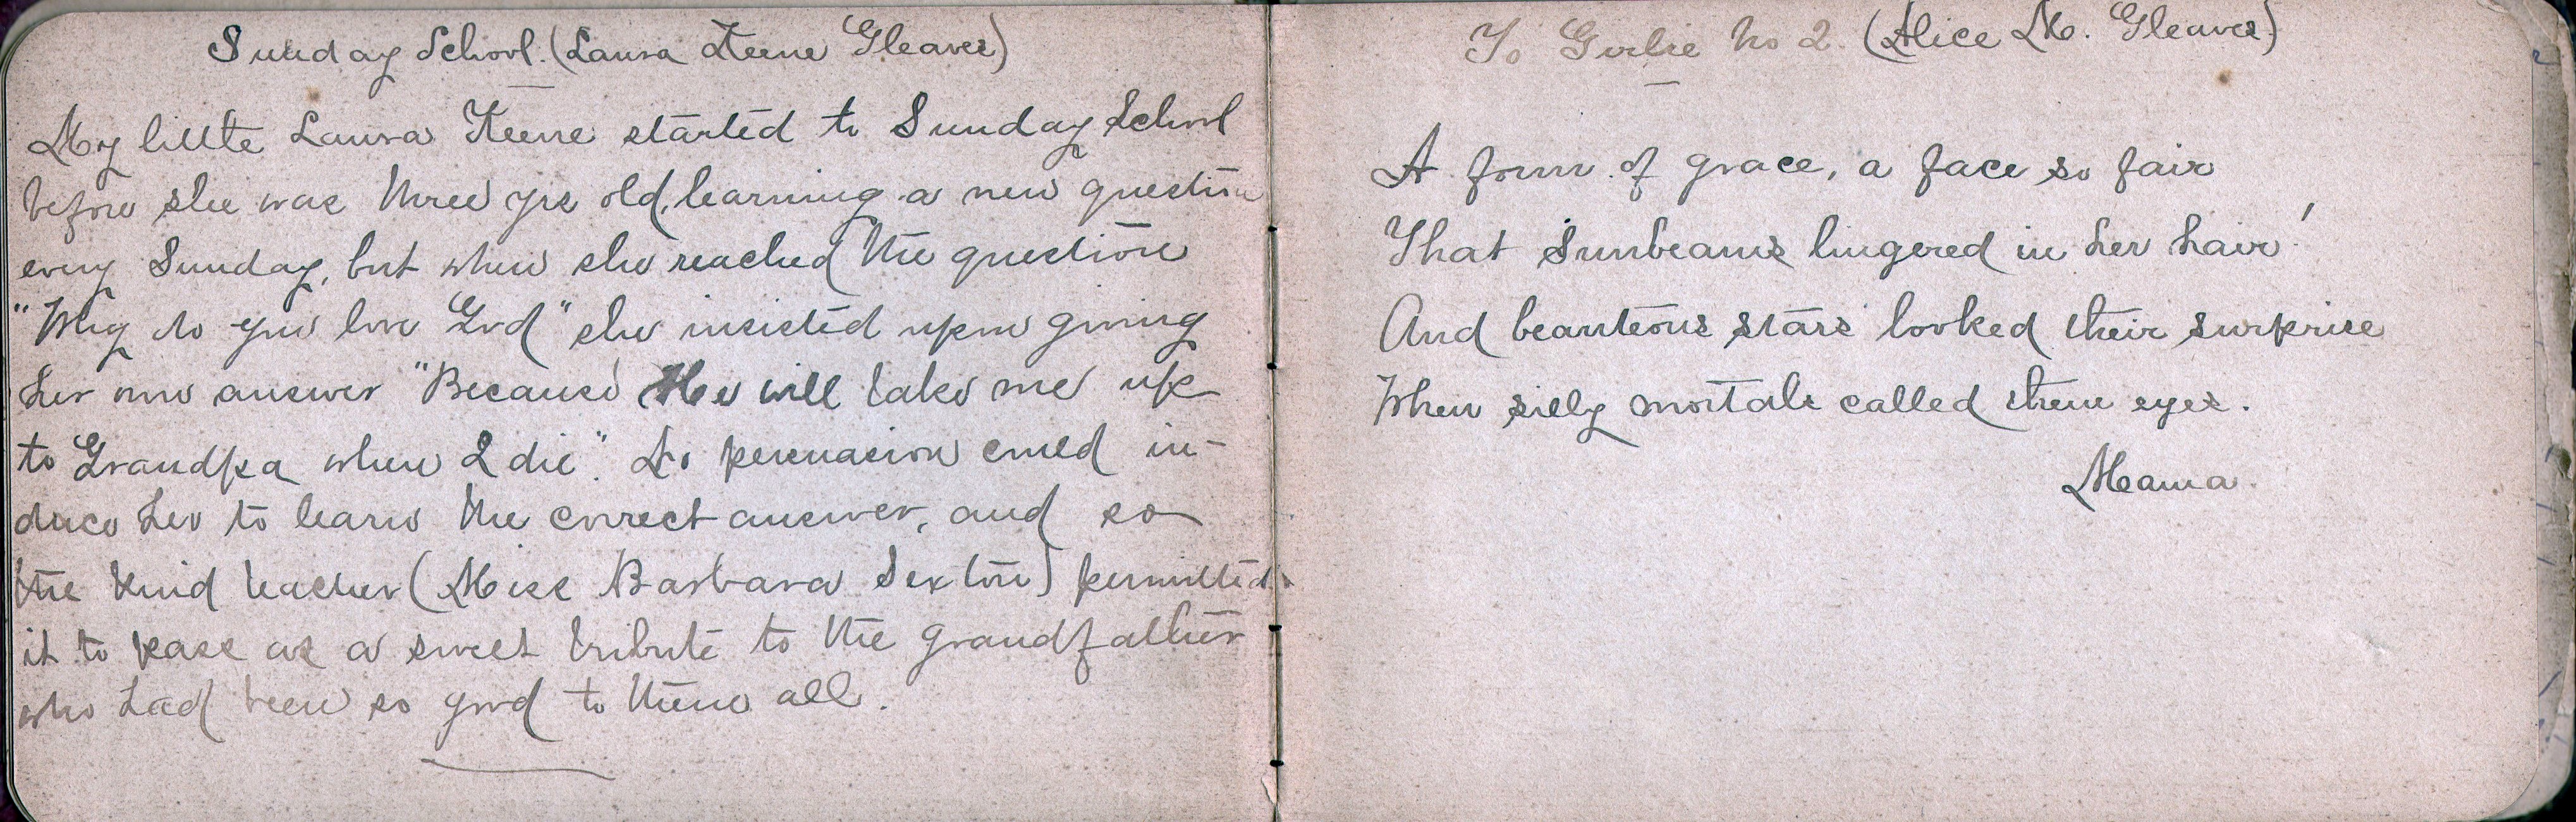 Sunday School. (Laura Keene Gleaves)
My little Laura Keene started to Sunday School
before she was three yrs old, learning a new question
every Sunday, but when she reached the question
"Why do you love God" she insisted upon giving
her own answer "Because He will take me up
to Grandpa when I die". No persuasion could in-
duce her to learn the correct answer, and so
the kind teacher (Miss Barbara Sexton) permitted
it to pass as a sweet tribute to the grandfather
who had been so good to them all.
To Girlie No 2. (Alice M. Gleaves)
A form of grace, a face so fair
That sunbeams lingered in her hair!
And beauteous stars looked their surprise
When silly mortals called them eyes.
Mama.